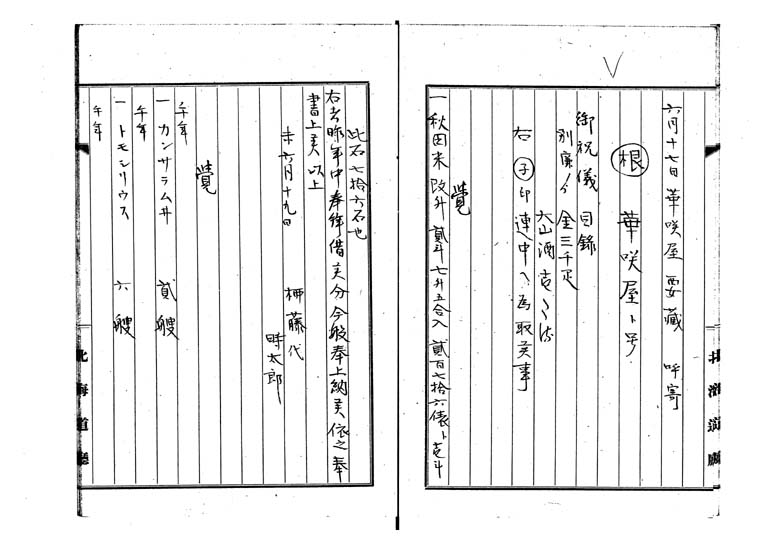 六月十七日 華咲屋要藏 呼寄
根 華咲屋ト号
御祝儀 目録
別廉ノ分 金三千疋
大山酒壱
右 子印 連中へ為取美事
覚
一 秋田米 改升 貳斗七升五合入 貳百七拾六俵ト壱斗
此石七拾六石也
右者昨年中奉拝借美分今般奉上納美依之奉
書上美 以上
未六月十九日 柳藤代
時太郎
覚
午年
一 カンサラムヰ 貳艘
午年
一 トモシリウス 六艘
午年
北海道廳
北海道廳